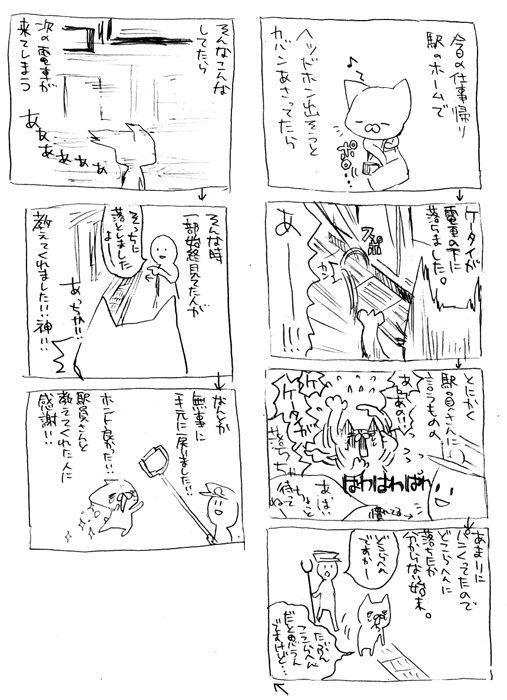 今日の仕事帰り
駅のホームで
ヘッドホン出そうと
カバンあさってたら
ポロ
ケータイが
電車の下に
落ちました。
あ
ー!!!
とにかく
駅員さんに
言うものの
ああ
あの!!
ケータイが
ケータイが
落ちちゃ
ぱわぱわぱわ
あ、はい
ちょっと
待って
ね
慣れてる→
あまりに
パニクってたので
どこらへんに
落ちたか
分からない始末。
どこらへん
ですかー
たぶん
ここらへん
だと思うん
ですけど…
そんなこんな
してたら
次の電車が
来てしまう
あぁぁぁぁぁ
そんな時
一部始終見てた人が
そっちに
落としました
よ
あっちか!!
教えてくれました!!神!!
なんとか
無事に
手元に戻りました!!
ホント良かった!!
駅員さんと
教えてくれた人に
感謝!!